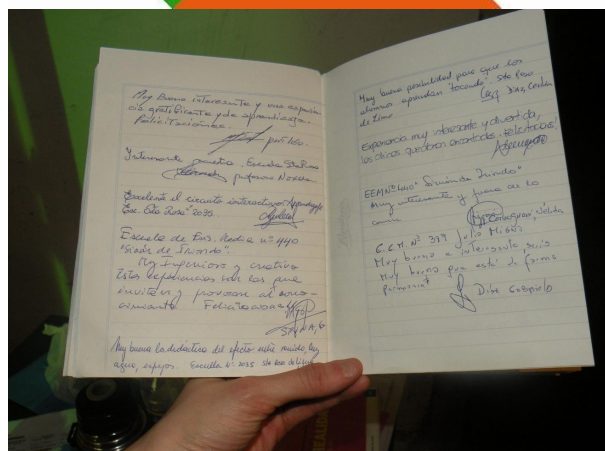 Muy Buena interesante y una experien
cia gratificante y de aprendizaje
Felicitaciones.
Interesante muestra. Escuela Sta Rosa
profesora
Excelente el circuito interactivo. Aprendizaje
Esc. Sta Rosa 2035.
Escuela de Ens. Media nº 440
"Simón de Iriondo".
Muy Ingenioso y creativo
Estas experiencias son las que
invitan y provocan al cono-
cimiento. Felicitaciones
SPINA, G
Muy buena la didáctica del efecto entre ruido, luz,
agua, espejos. Escuela Nº 2035 Sta Rosa de Lima
Muy buena posibilidad para que los
alumnos aprendan "tocando". Sta Rosa
de Lima
Experiencia muy interesante y divertida,
los chicos quedaron encantados. Felicitaciones!
EEM Nº 440 "Simón de Iriondo"
Muy interesante y fuera de lo
común
E.E.M. Nº 349 Julio Migno
Muy bueno e interesante, sería
muy bueno que esté de forma
permanente
Díaz